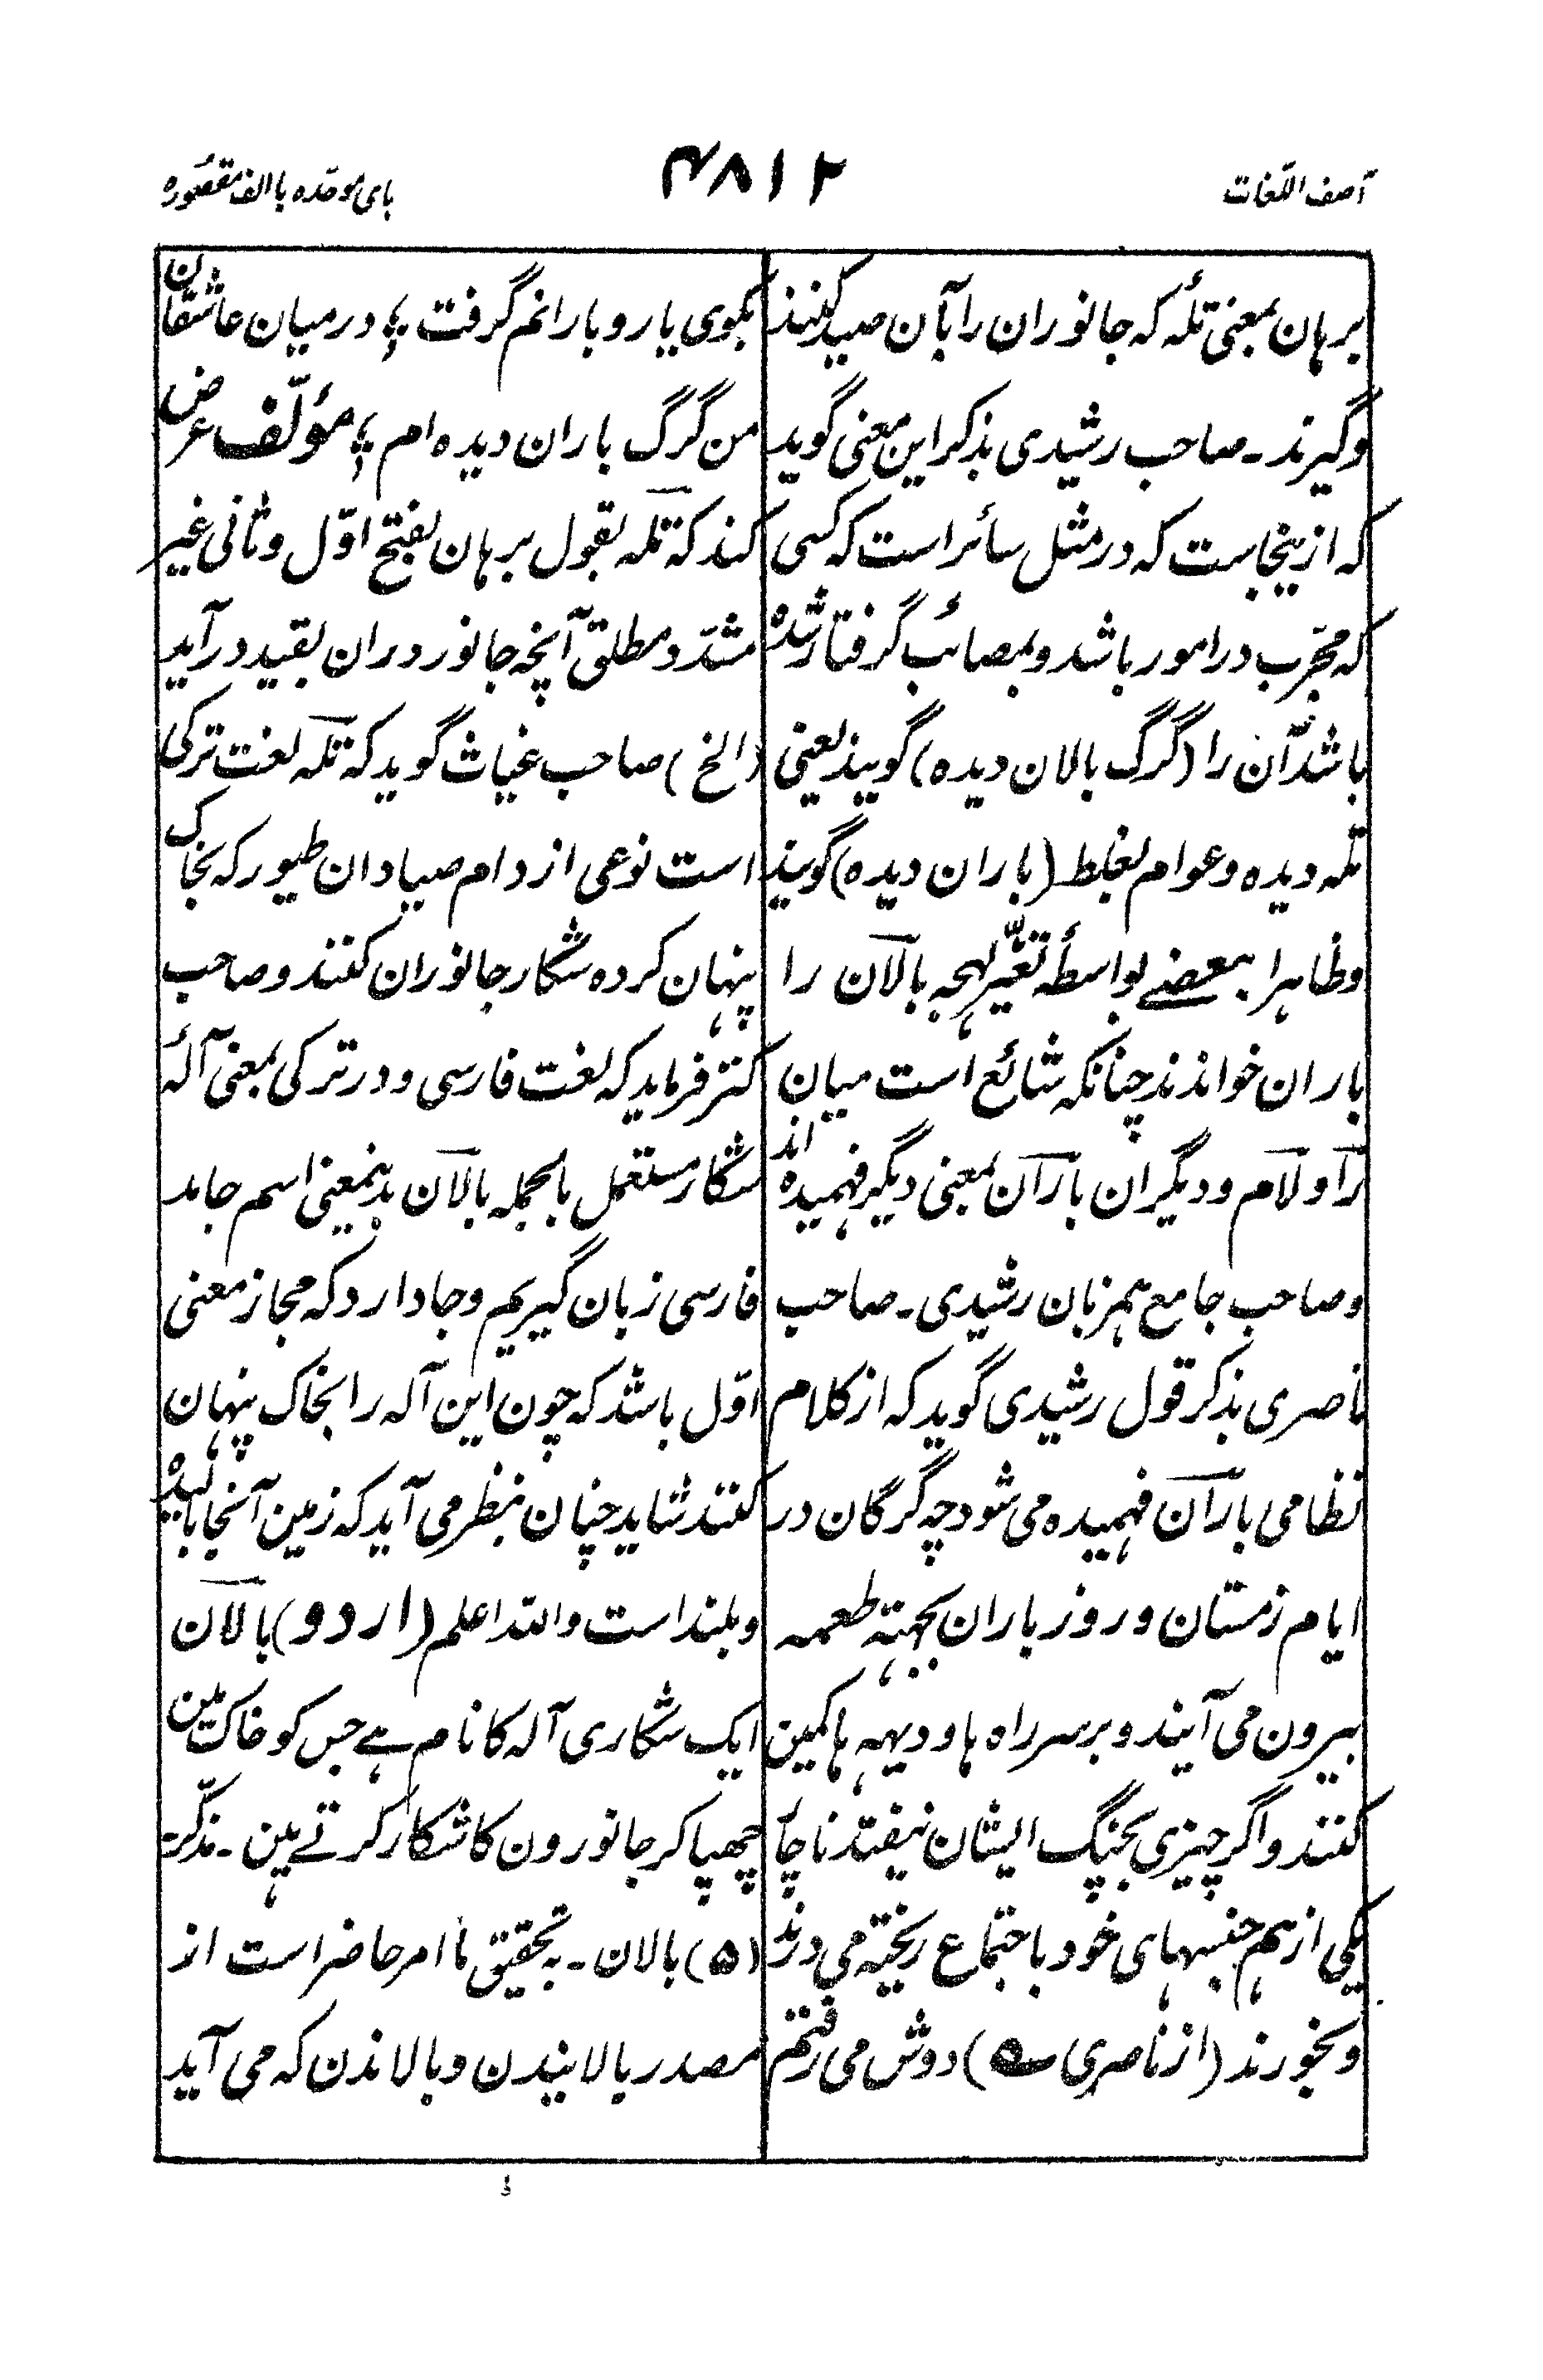 آصف اللّغات
۴۸۱۲
بای موحّده با الف مقصوره
برهان بمعنی تلهٔ که جانوران را بآن صید کنند
و گیرند ۔ صاحب رشیدی بذکر این معنی گوید
که ازینجاست که در مثل سائر است که کسی
که مجرّب در امور باشد و بمصائب گرفتار شده
باشد آن را (گرگ بالان دیده) گویند یعنی
تله دیده و عوام بغلط (باران دیده) گویند
و ظاهرا بعضے بواسطهٔ تغیّر لهجه بالان را
باران خواندند چنانکه شائع است میان
را و لام و دیگران باران بمعنی دیگر فهمیده اند
و صاحب جامع همزبان رشیدی ۔ صاحب
ناصری بذکر قول رشیدی گوید که از کلام
نظامی باران فهمیده می شود چه گرگان در
ایام زمستان و روز باران بجهته طعمه
بیرون می آیند و بر سر راه ها و دیهه ها کمین
کنند و اگر چیزی بچنگ ایشان نیفتد ناچار
یکی از هم جنسهای خود با جتماع ریخته می درند
و بخورند (از ناصری ؎) دوش می رفتم
بکوی یار و بارانم گرفت ؛؛ در میان عاشقان
من گرگ باران دیده ام ؛؛ مؤلّف عرض
کند که تله بقول برهان بفتح اوّل و ثانی غیر
مشدّد مطلق آنچه جانور دران بقید در آید
(الخ) صاحب غیاث گوید که تله لغت ترکی
است نوعی از دام صیادان طیور که بخاک
پنهان کرده شکار جانوران کنند و صاحب
کنز فرماید که لغت فارسی و در ترکی بمعنی آلهٔ
شکار مستعمل بالجمله بالان بدینمعنی اسم جامد
فارسی زبان گیریم و جا دارد که مجاز معنی
اوّل باشد که چون این آله را بخاک پنهان
کنند شاید چنان بنظر می آید که زمین آنجا بالیده
و بلند است والله اعلم (اردو) بالان
ایک شکاری آله کا نام ہے جس کو خاک مین
چھپا کر جانورون کا شکار کرتے ہین ۔ مذکّر
(۵) بالان ۔ به تحقیق ما امر حاضر است از
مصدر بالانیدن و بالاندن که می آید